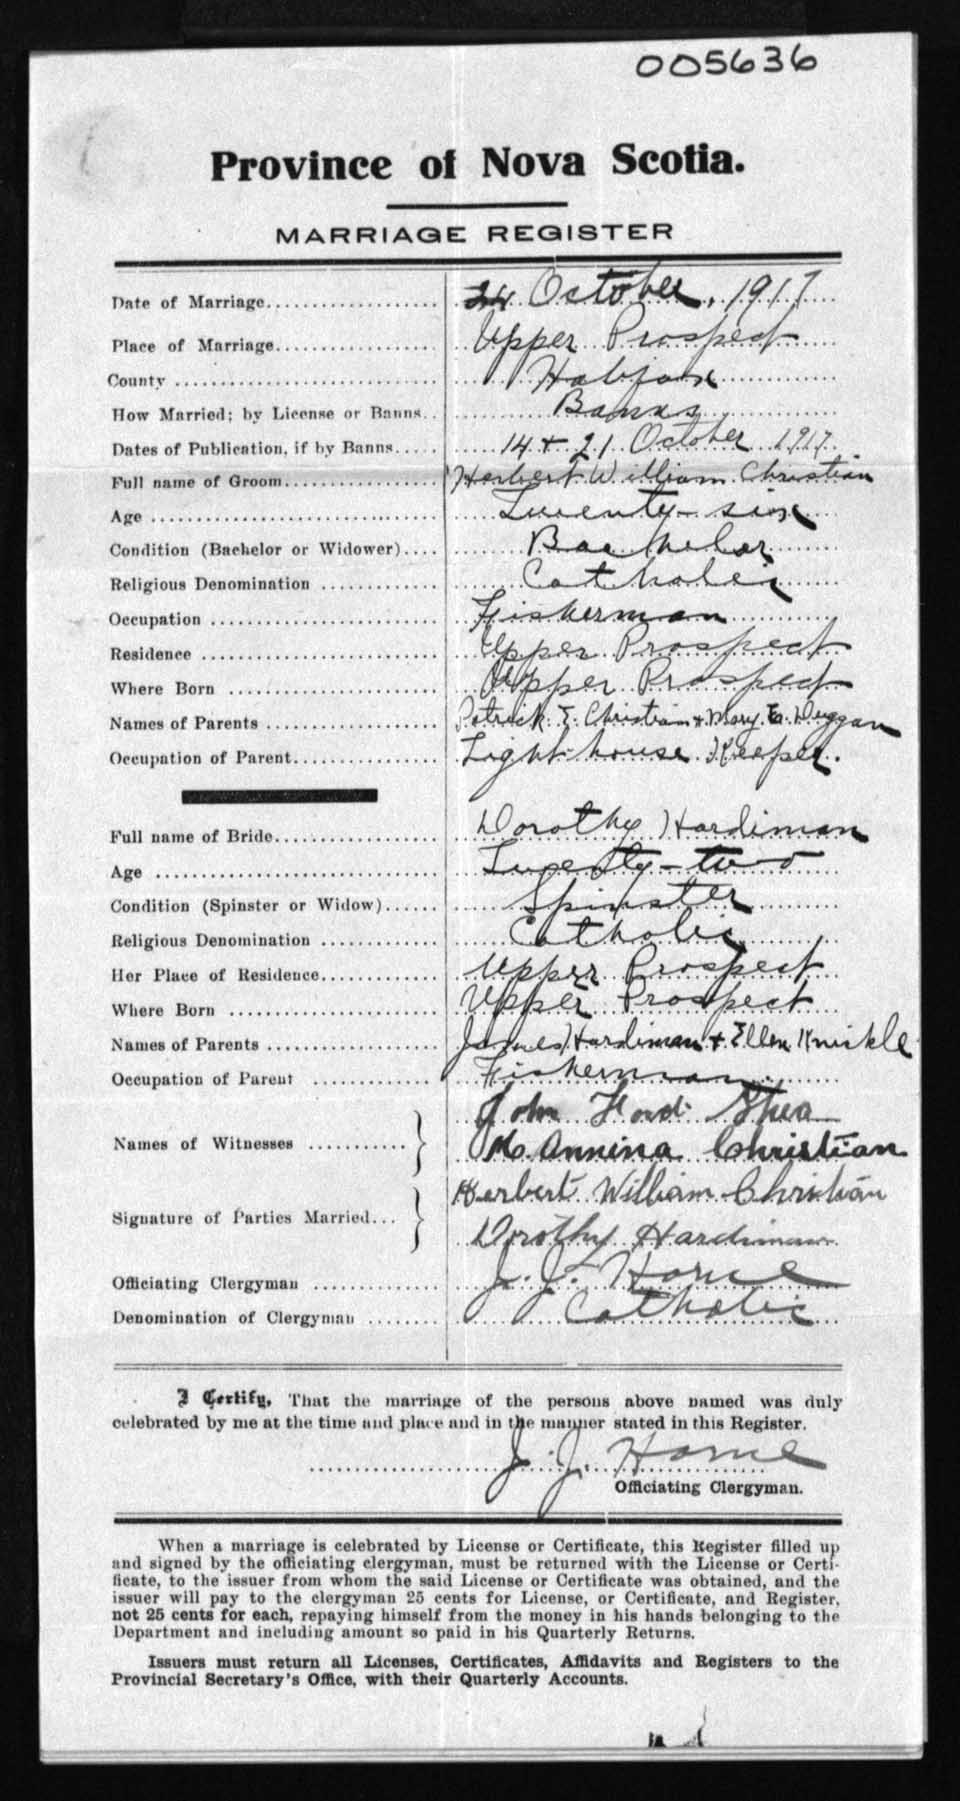 005636
Province of Nova Scotia.
MARRIAGE REGISTER
Date of Marriage 24 October, 1917
Place of Marriage Upper Prospect
County Halifax
How Married; by License or Banns Banns
Dates of Publication, if by Banns 14 + 21 October 1917
Full name of Groom Herbert William Christian
Age Twenty-six
Condition (Bachelor or Widower) Bachelor
Religious Denomination Catholic
Occupation Fisherman
Residence Upper Prospect
Where Born Upper Prospect
Names of Parents Patrick E. Christian + Mary Duggan
Occupation of Parent Light house Keeper.
Full name of Bride Dorothy Hardiman
Age Twenty-two
Condition (Spinster or Widow) Spinster
Religious Denomination Catholic
Her Place of Residence Upper Prospect
Where Born Upper Prospect
Names of Parents James Hardiman + Ellen Knickle
Occupation of Parent Fisherman
John Ford Shea
Names of Witnesses
Annina Christian
Herbert William Christian
Signature of Parties Married
Dorothy Hardiman
Officiating Clergyman J. J. Horne
Denomination of Clergyman Catholic
I Certify, That the marriage of the persons above named was duly
celebrated by me at the time and place and in the manner stated in this Register.
J. J. Horne
Officiating Clergyman.
When a marriage is celebrated by License or Certificate, this Register filled up
and signed by the officiating clergyman, must be returned with the License or Certi-
ficate, to the issuer from whom the said License or Certificate was obtained, and the
issuer will pay to the clergyman 25 cents for License, or Certificate, and Register,
not 25 cents for each, repaying himself from the money in his hands belonging to the
Department and including amount so paid in his Quarterly Returns.
Issuers must return all Licenses, Certificates, Affidavits and Registers to the
Provincial Secretary's Office, with their Quarterly Accounts.